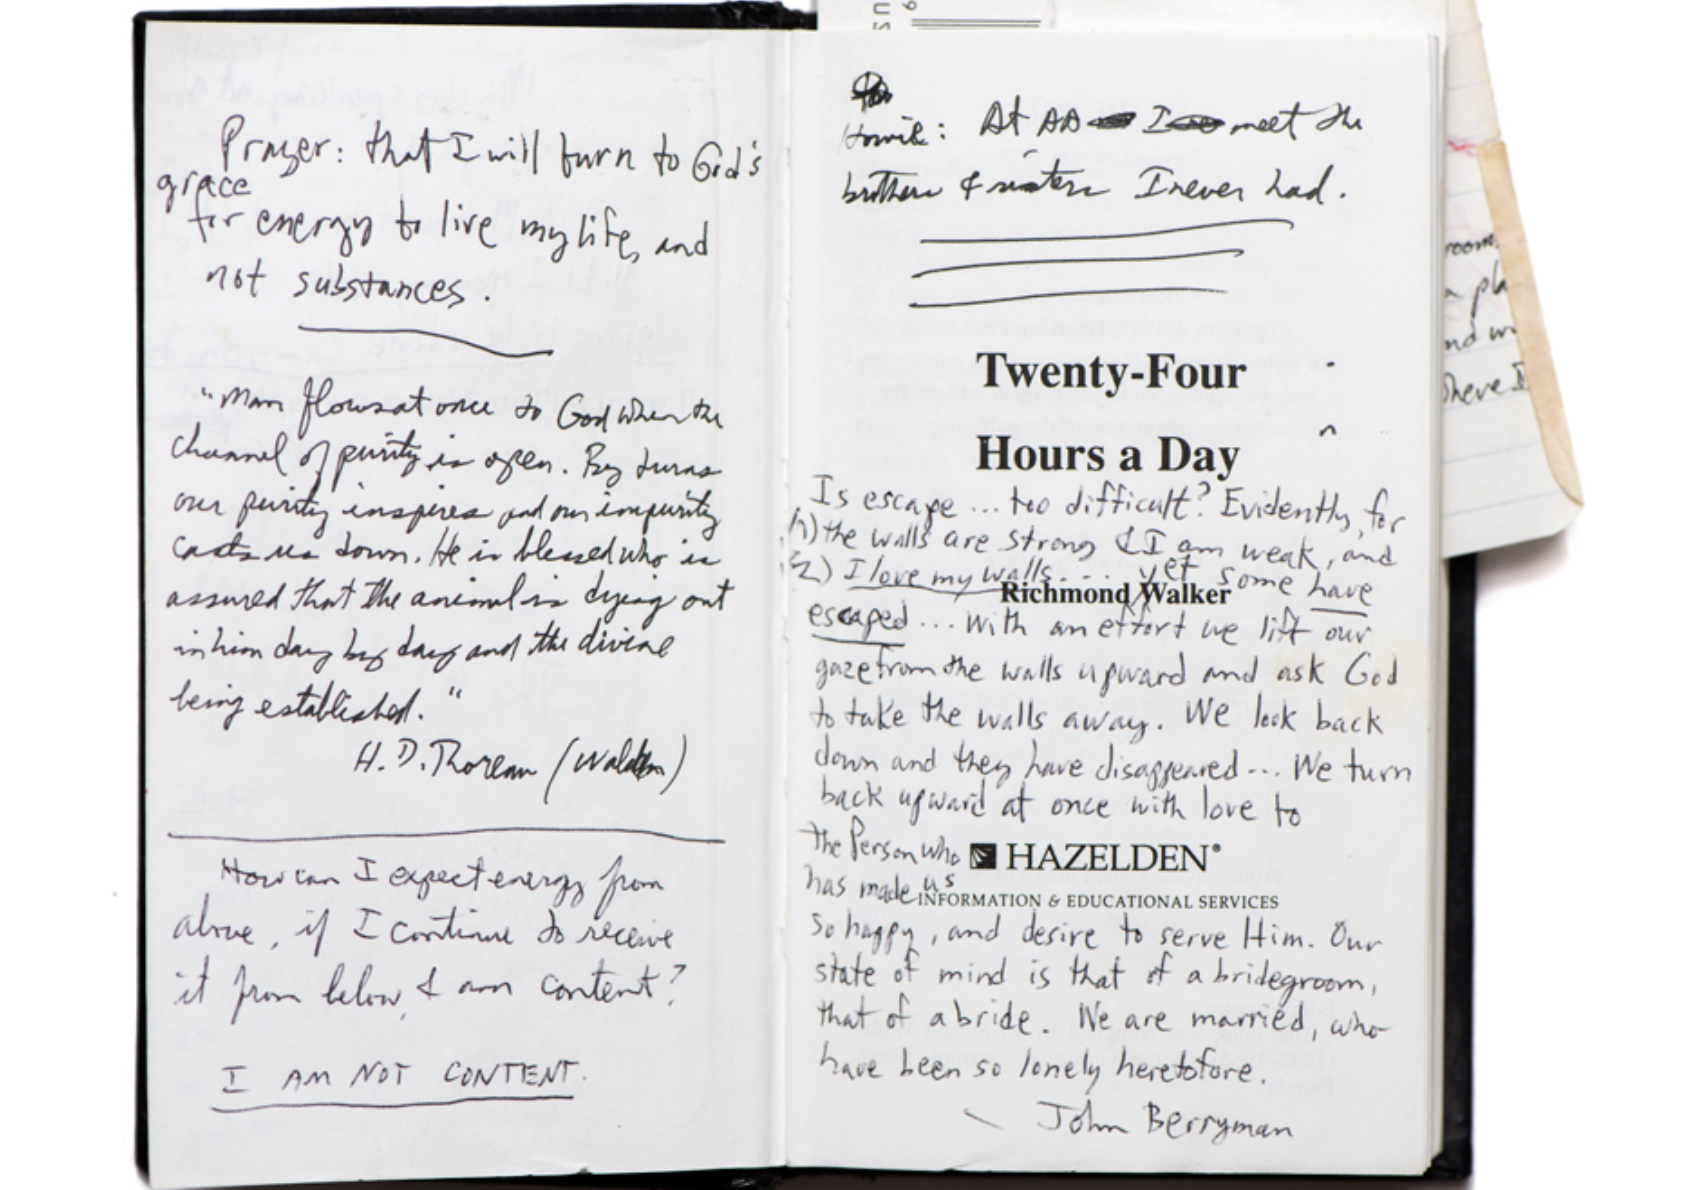 Prayer: that I will turn to God's
grace
for energy to live my life, and
not substances.
"Man flows at once to God when the
channel of purity is open. By turns
our purity inspires and our impurity
casts us down. He is blessed who is
assured that the animal is dying out
in him day by day and the divine
being established."
H. D. Thoreau (Walden)
How can I expect energy from
above, if I continue to receive
it from below, & am content?
I AM NOT CONTENT.
US
At AA I meet the
brothers & sisters I never had.
Twenty-Four
Hours a Day
Is escape ... too difficult? Evidently, for
1) the walls are strong & I am weak, and
2) I love my walls.... yet some have
Richmond Walker
escaped ... With an effort we lift our
gaze from the walls upward and ask God
to take the walls away. We look back
down and they have disappeared ... We turn
back upward at once with love to
the Person who
HAZELDEN®
has made us
INFORMATION & EDUCATIONAL SERVICES
so happy, and desire to serve Him. Our
state of mind is that of a bridegroom,
that of a bride. We are married, who
have been so lonely heretofore.
John Berryman
room.
a pla
nd w
where I